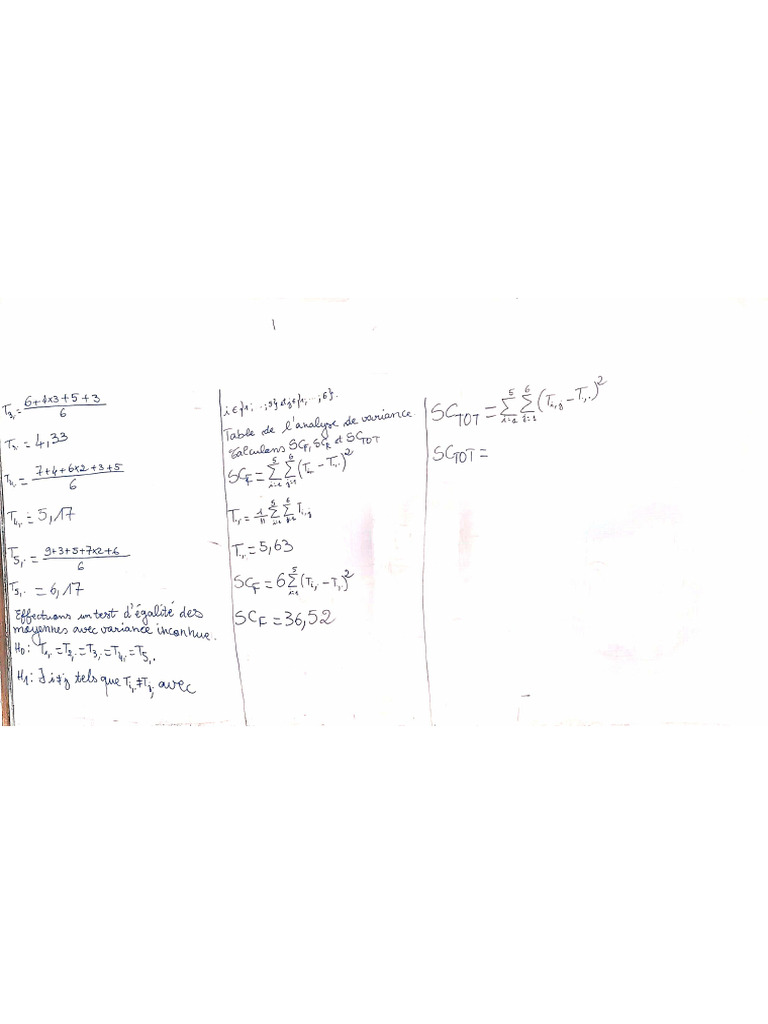 T₃,. = (6+4x3+5+3)/6
T₃,. = 4,33
T₄,. = (7+4+6x2+3+5)/6
T₄,. = 5,17
T₅,. = (9+3+5+7x2+6)/6
T₅,. = 6,17
Effectuons un test d'égalité des
moyennes avec variance inconnue.
H₀: T₁,. = T₂,. = T₃,. = T₄,. = T₅,.
H₁: ∃ i≠j tels que Tᵢ,. ≠ Tⱼ,. avec
i ∈ {1; ..; 5} et j ∈ {1, ...; 6}.
Table de l'analyse de variance.
Calculons SC_F, SC_R et SC_TOT
SC_F = ∑_{i=1}^{5} ∑_{j=1}^{6} (Tᵢ,. - T.,.)²
T.,. = 1/n ∑_{i=1}^{5} ∑_{j=1}^{6} Tᵢ,ⱼ
T.,. = 5,63
SC_F = 6 ∑_{i=1}^{5} (Tᵢ,. - T.,.)²
SC_F = 36,52
SC_TOT = ∑_{i=1}^{5} ∑_{j=1}^{6} (Tᵢ,ⱼ - T.,.)²
SC_TOT =